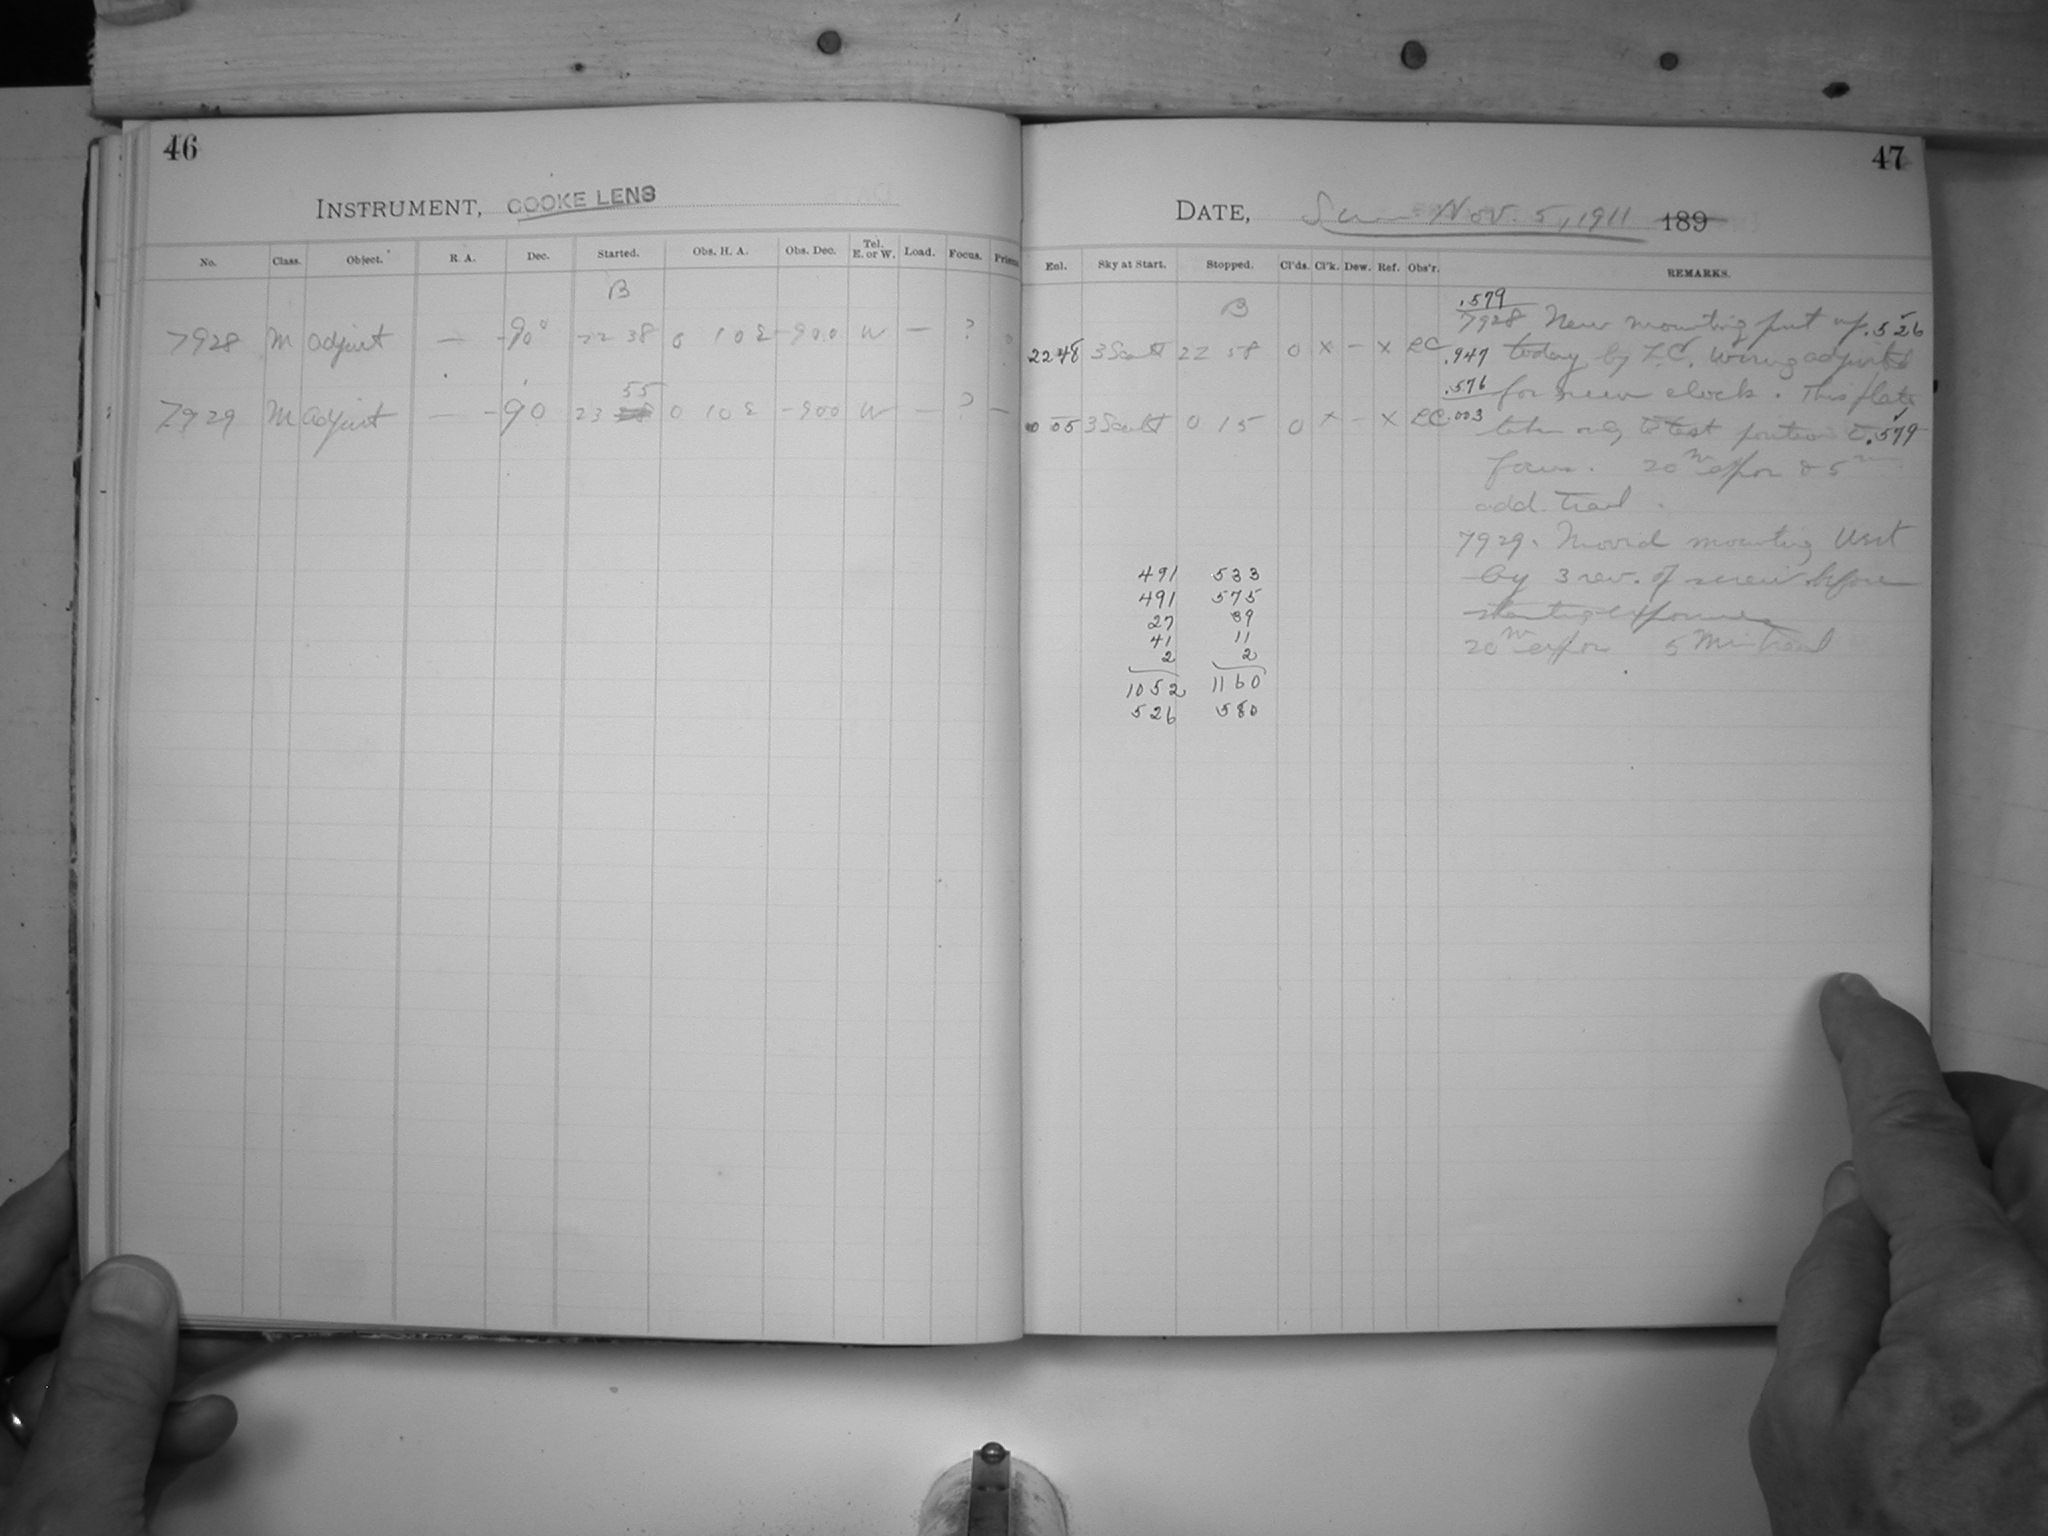 46
INSTRUMENT, COOKE LENS
No. Class. Object. R. A. Dec. Started. Obs. H. A. Obs. Dec. Tel. E. or W. Load. Focus. Prism
B
7928 M adjust — -90° 22 38 0 10 E -900 W — ?
55
7929 M adjust — -90 23 0 10 E -900 W — ? —
47
DATE, Sun. Nov. 5, 1911 189
Eol. Sky at Start. Stopped. Cl'ds. Cl'k. Dew. Ref. Obs'r. REMARKS.
B
.579
7928 New mounting put up .526
2248 3 22 58 0 x — x LC .947 today by L.C. Wiring adjusted
.576 for new clock. This plate
0 05 3 0 15 0 x — x LC .003 taken only to test position & .579
focus. 20m expon & 5m
add. trail.
7929. Moved mounting West
by 3 rev. of screw before
starting exposure
20m expon 5 Min trail
491 533
491 575
27 39
41 11
2 2
1052 1160
526 580